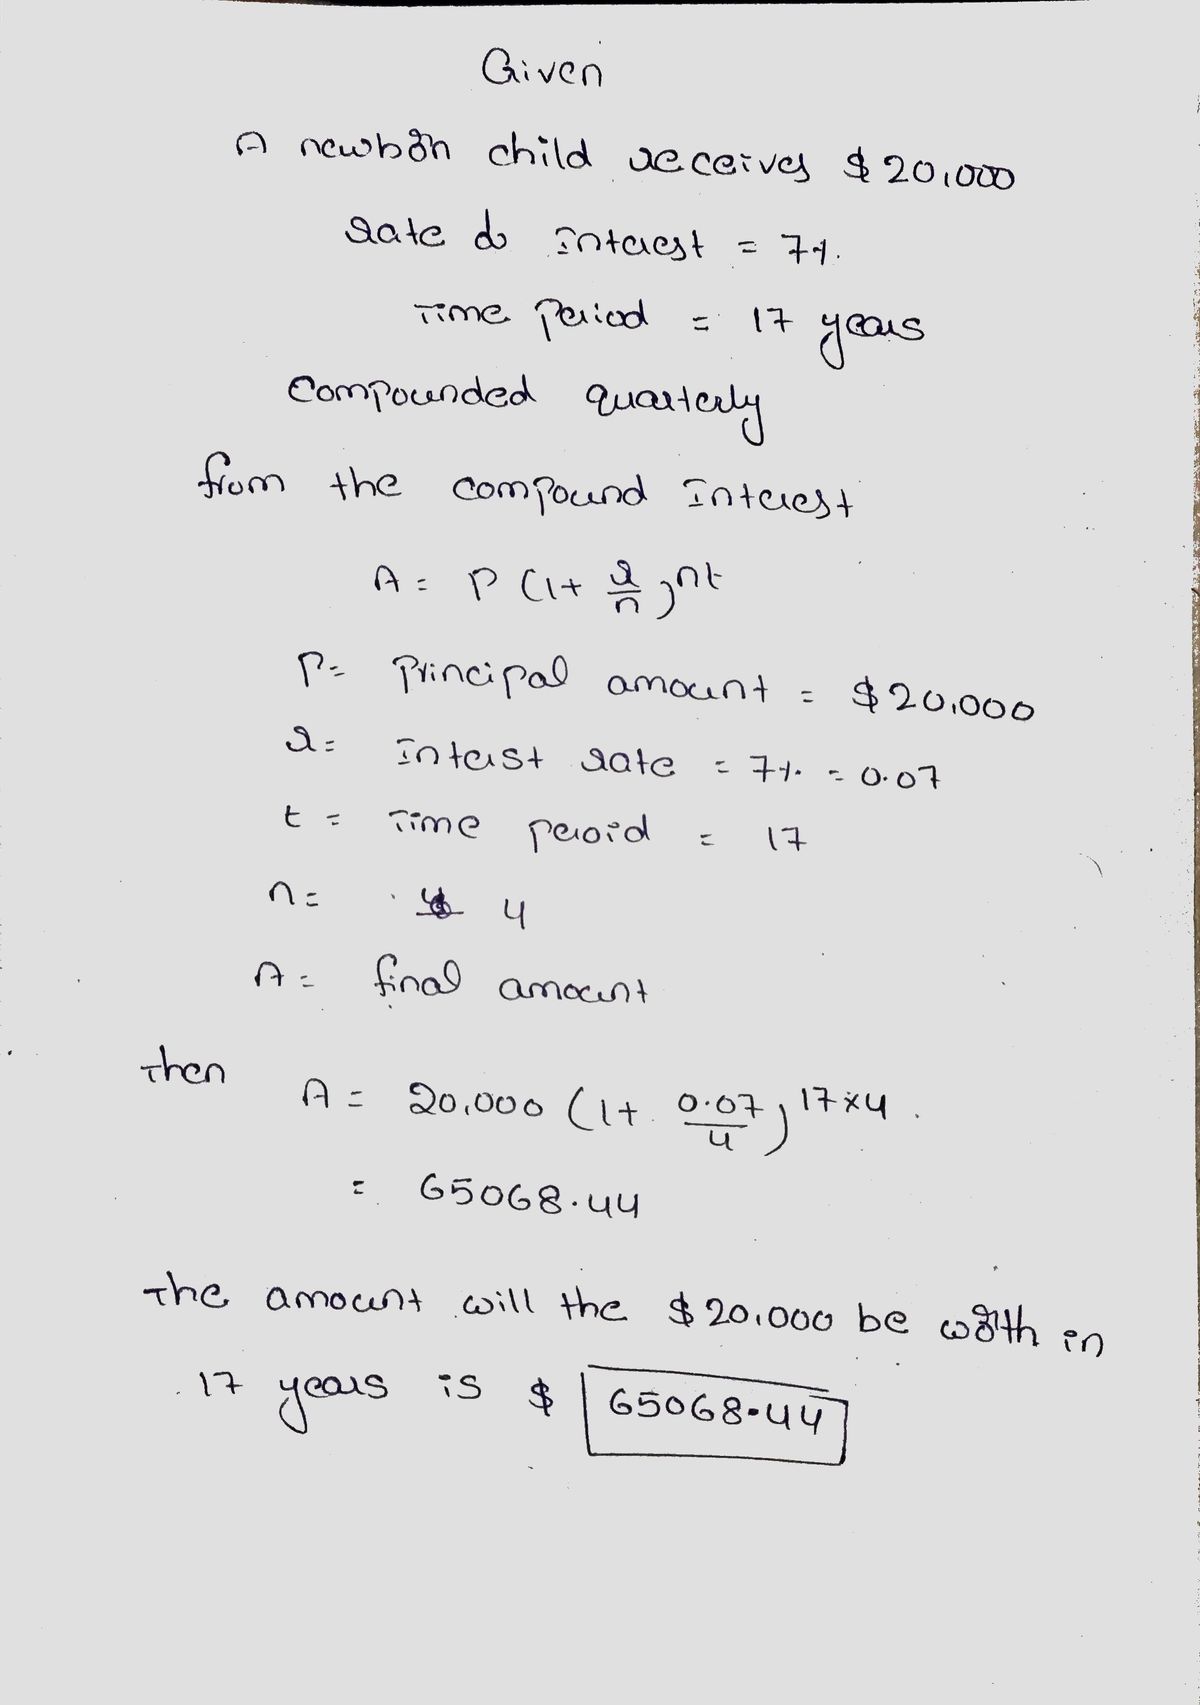 Given
A newborn child receives $20,000
rate of Interest = 7%.
Time Period = 17 years
Compounded quarterly
from the compound Interest
A = P (1 + r/n)^nt
P = Principal amount = $20,000
r = Interst rate = 7% = 0.07
t = Time peroid = 17
n = 4
A = final amount
Then
A = 20,000 (1 + 0.07/4)^17×4.
= 65068.44
The amount will the $20,000 be worth in
17 years is $ 65068.44